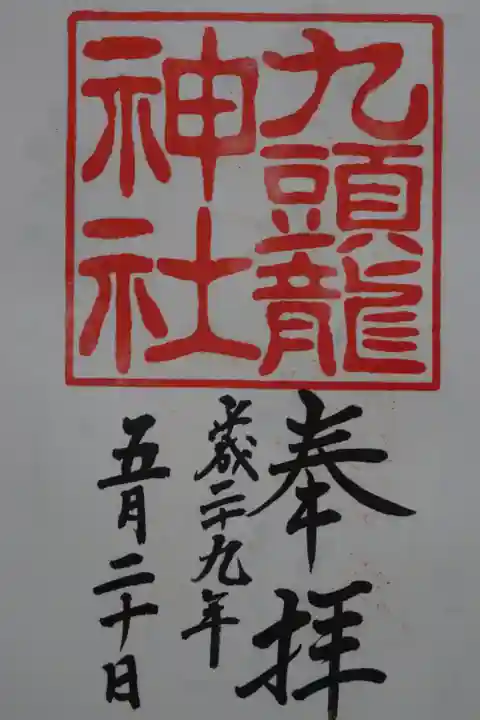 九頭龍
神社
奉拝
平成二十九年
五月二十日